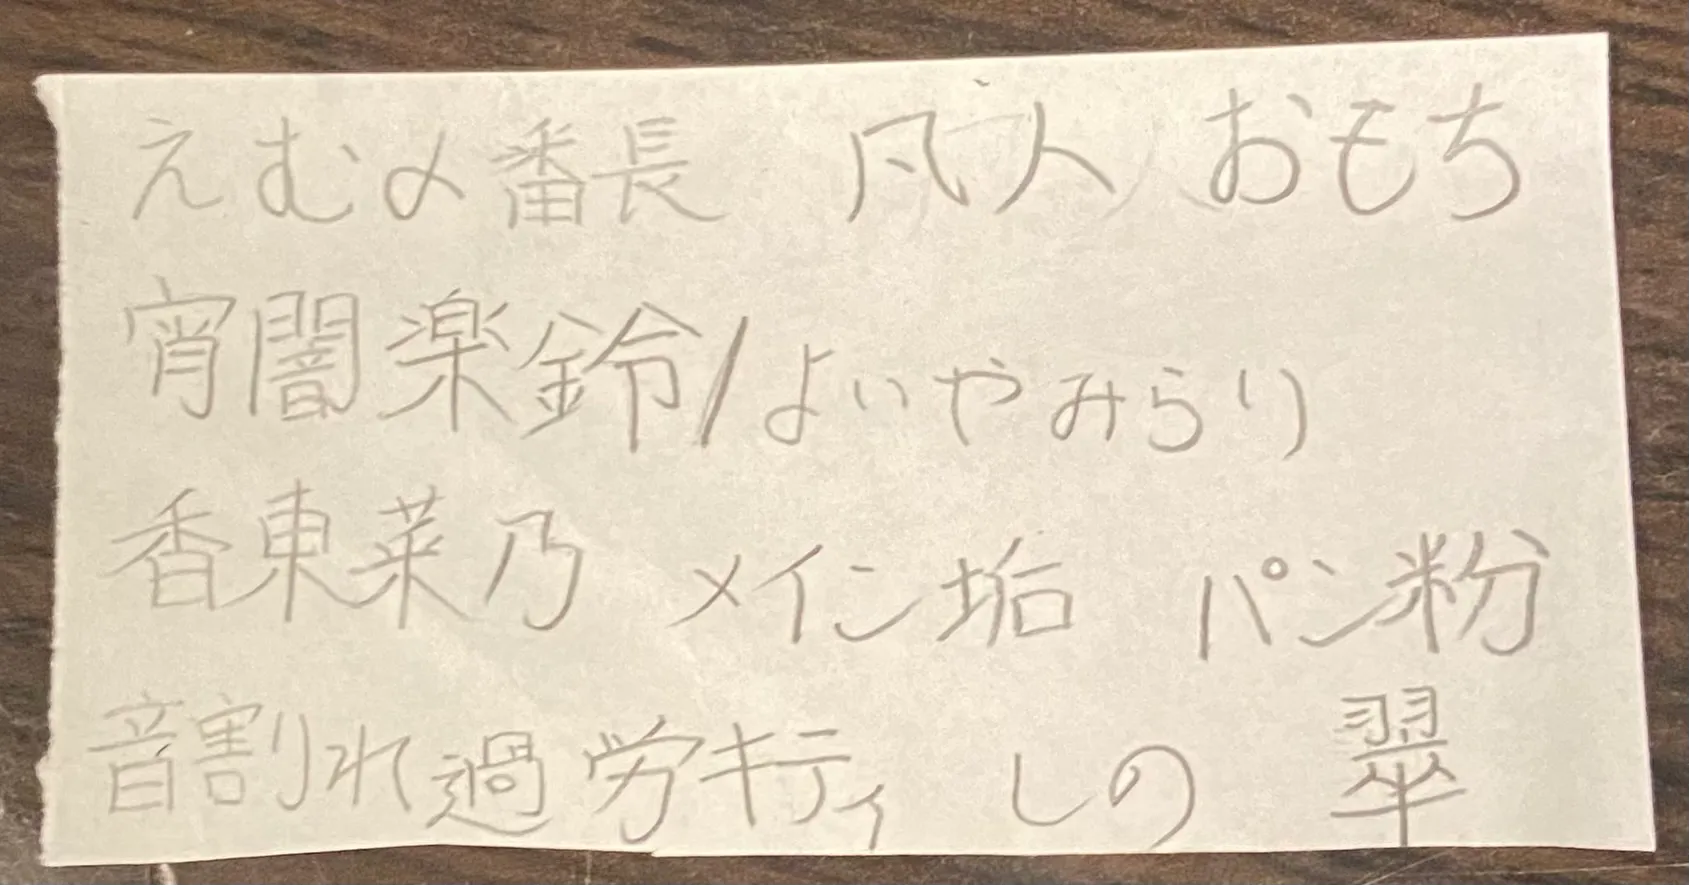 えむ〆番長 凡人 おもち
宵闇楽鈴/よいやみらり
香東菜乃 メイン垢 パン粉
音割れ過労キティ しの 翠